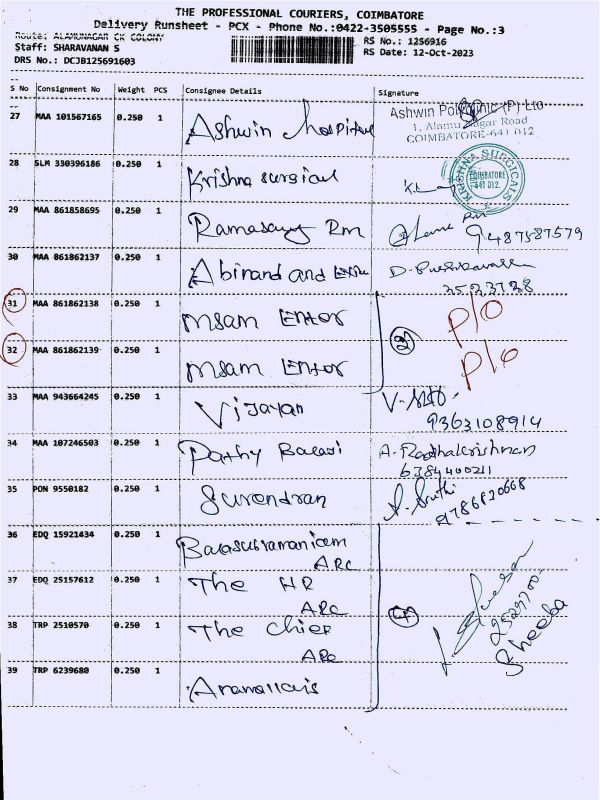 THE PROFESSIONAL COURIERS, COIMBATORE
Delivery Runsheet - PCX - Phone No.:0422-3505555 - Page No.:3
Route: ALAMUNAGAR CK COLONY
RS No.: 1256916
Staff: SHARAVANAN S
RS Date: 12-Oct-2023
DRS No.: DCJB125691603
S No Consignment No Weight PCS Consignee Details Signature
27 MAA 101567165 0.250 1 Ashwin hospital
Ashwin Polyclinic (P) Ltd
1, Alamu Nagar Road
COIMBATORE-641 012
28 SLM 330396186 0.250 1 Krishna surgical
KRISHNA SURGICALS
COIMBATORE
641 012.
29 MAA 861858695 0.250 1 Ramasamy Rm
9487587579
30 MAA 861862137 0.250 1 Abinand and
3523738
31 MAA 861862138 0.250 1 msam Enter P/O
32 MAA 861862139 0.250 1 msam Enter P/O
2
33 MAA 943664245 0.250 1 Vijayan
9363108914
34 MAA 107246503 0.250 1 Pathy Balaji A. Radhakrishnan
6384400211
35 PON 9550182 0.250 1 Surendran
9786830668
36 EDQ 15921434 0.250 1 Balasubramaniam
ARC
37 EDQ 25157612 0.250 1 The HR
ARC
38 TRP 2510570 0.250 1 The Chief
ARC
39 TRP 6239680 0.250 1
4
2529700
Sheeba